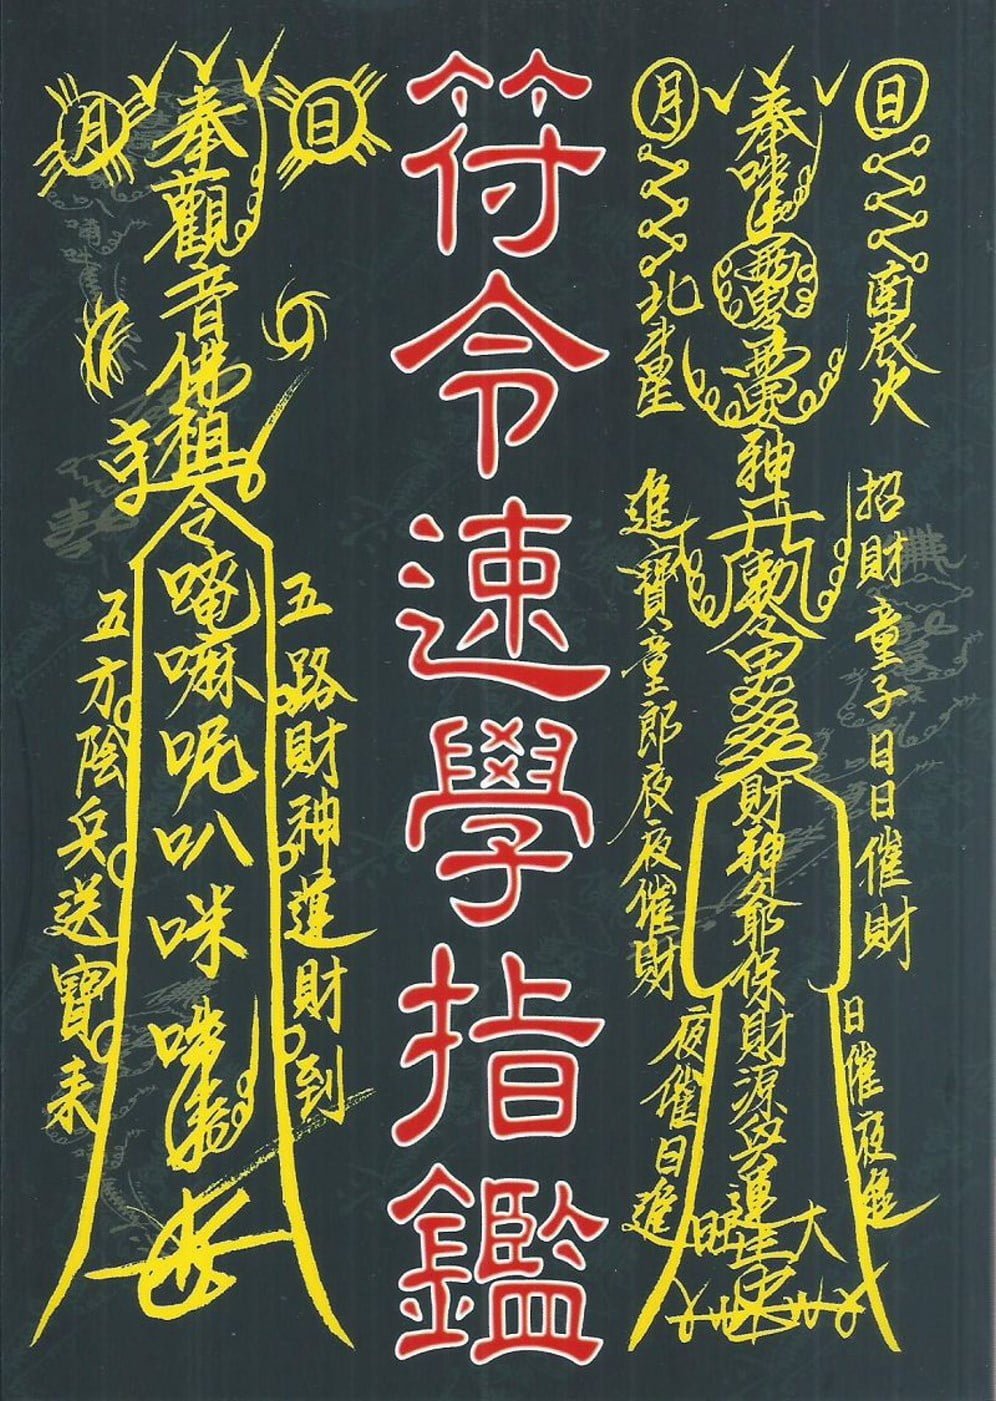 日
南辰火
招財童子日日催財
日催夜進
奉
神
勅令
財神爺保財源
運
大旺
月
北斗星
進寶童郎夜夜催財
夜催日進
符令速學指鑑
日
五路財神運財到
奉觀音佛祖令唵嘛呢叭咪吽
月
五方陰兵送寶來